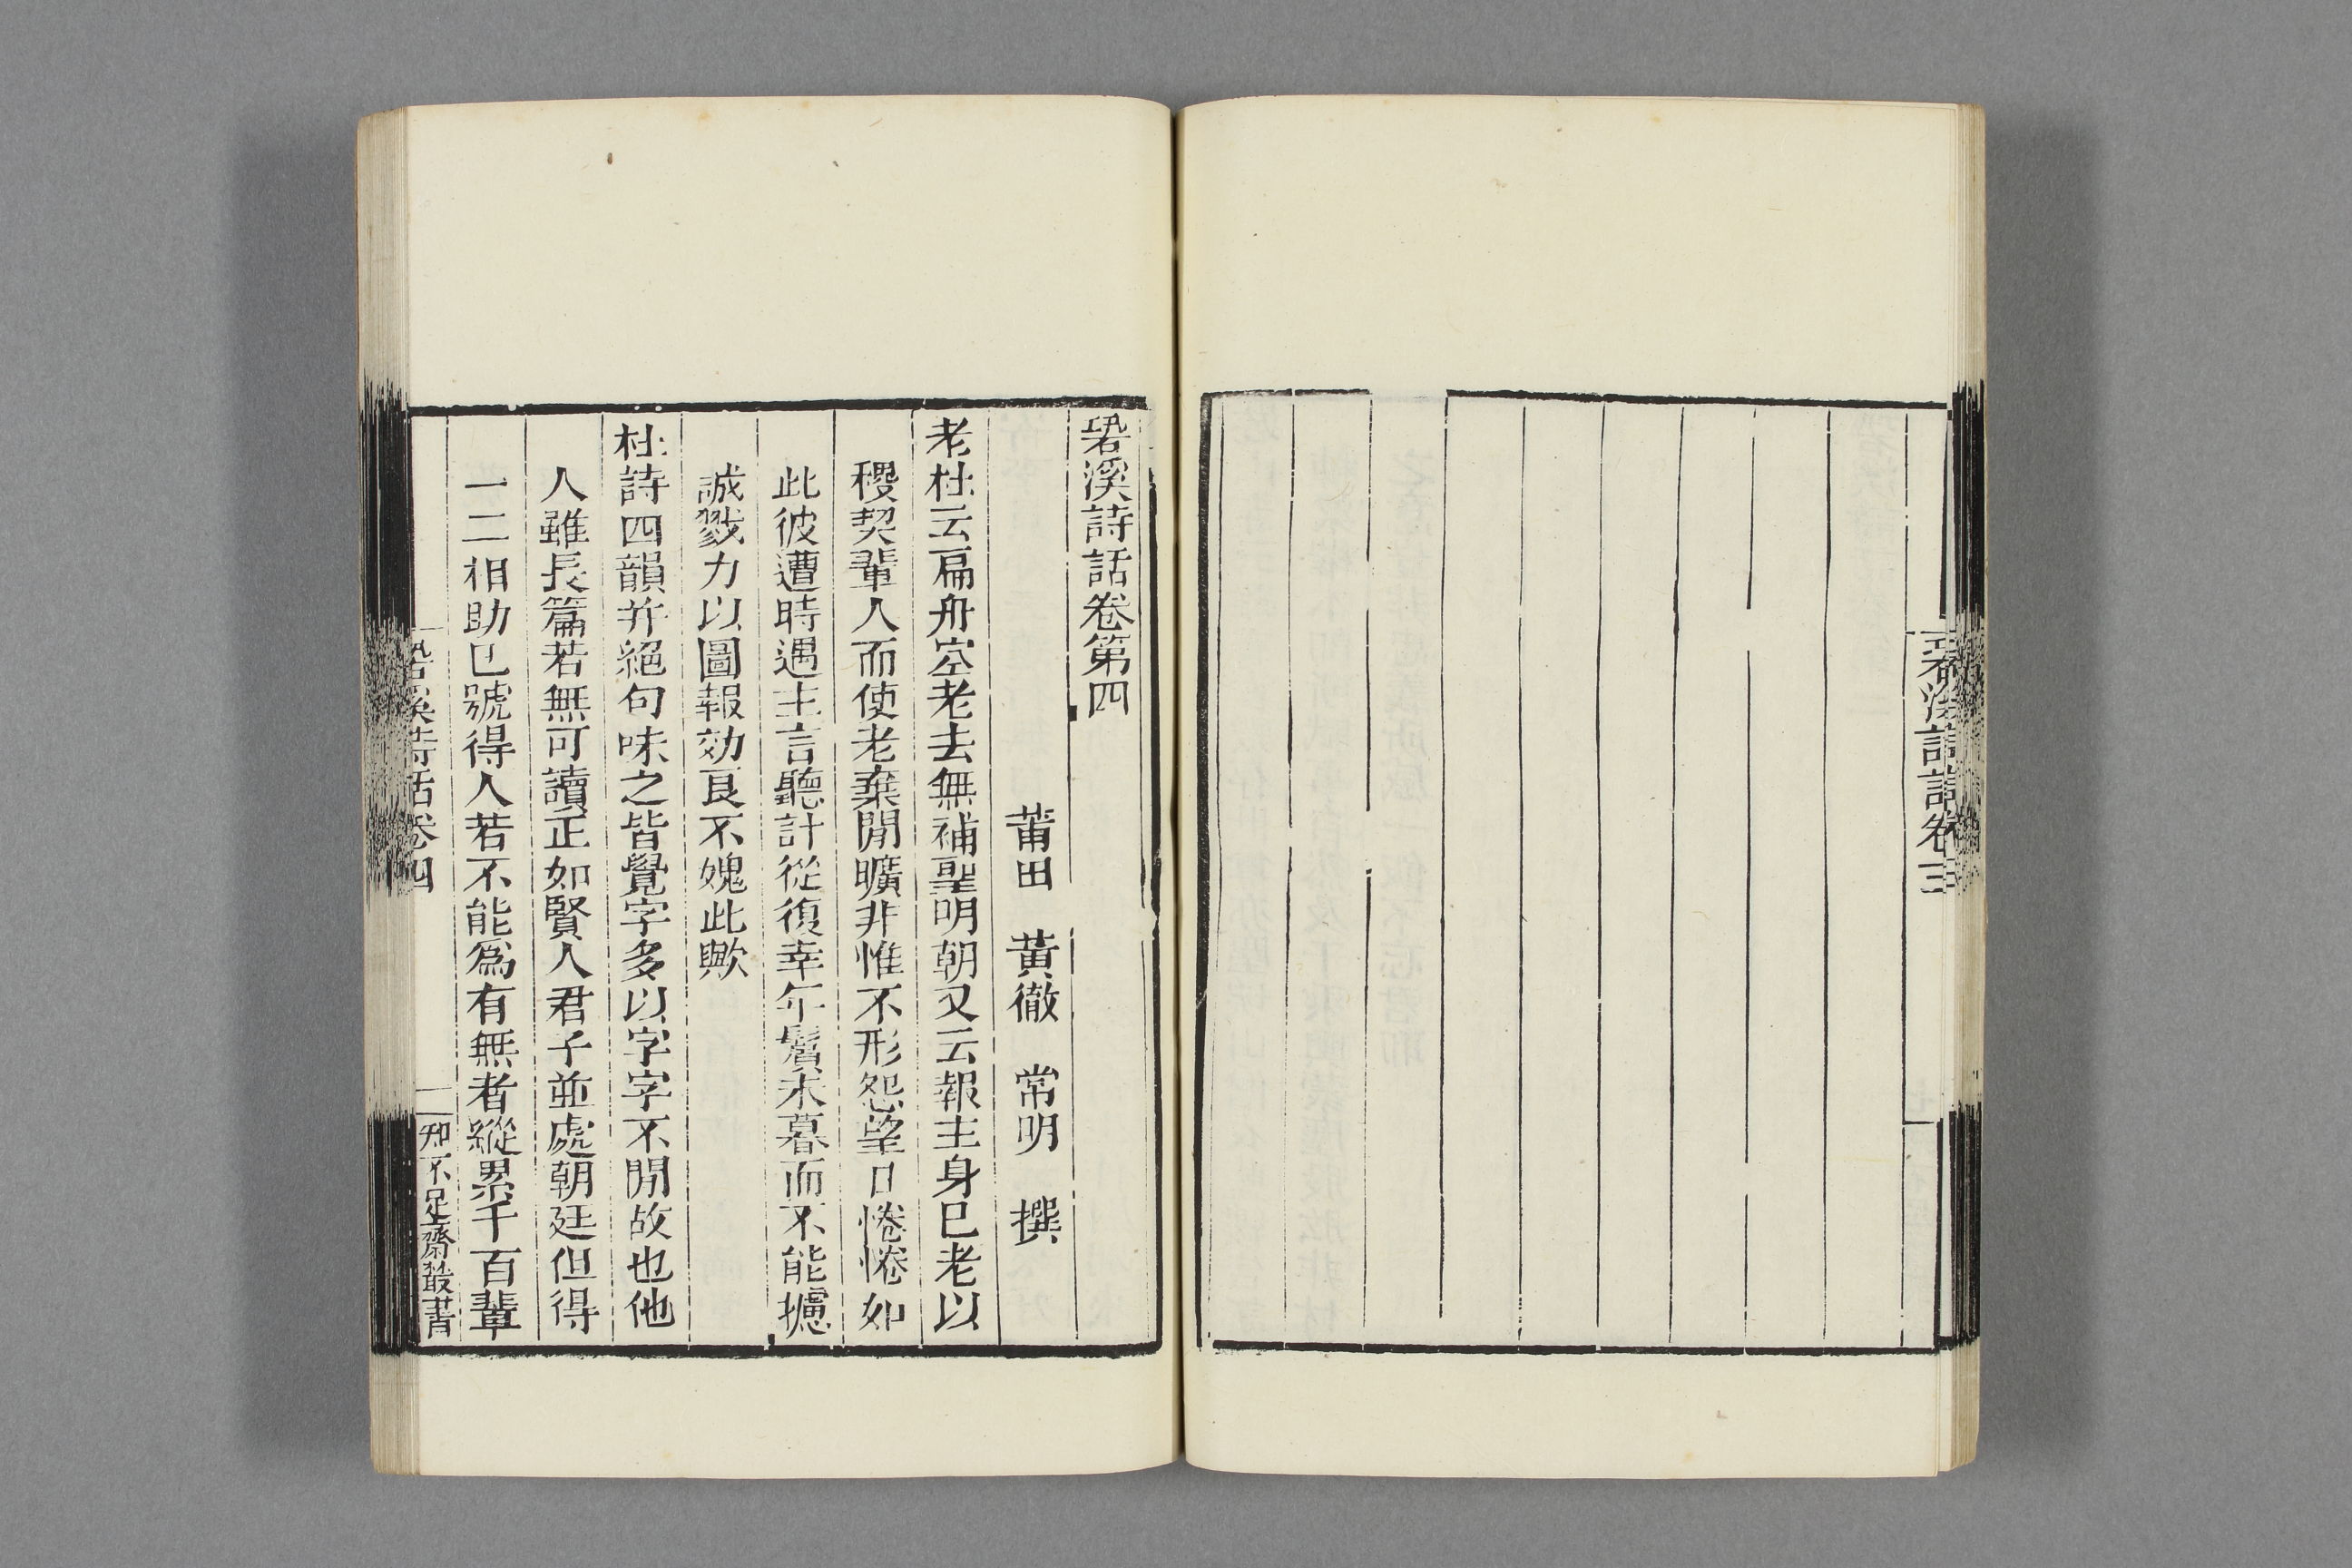 䂬溪詩話卷第四
莆田　黃徹　常明　撰
老杜云扁舟空老去無補聖明朝又云報主身已老以
稷契輩人而使老棄閒曠非惟不形怨望口惓惓如
此彼遭時遇主言聽計從復幸年鬢未暮而不能攄
誠戮力以圖報効良不媿此歟
杜詩四韻幷絕句味之皆覺字多以字字不閒故也他
人雖長篇若無可讀正如賢人君子並處朝廷但得
一二相助已號得人若不能爲有無者縱累千百輩
䂬溪詩話卷四
知不足齋叢書